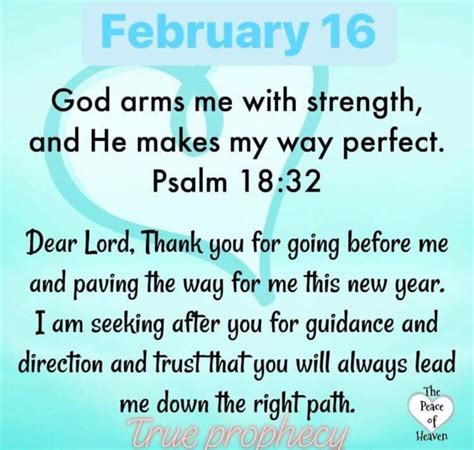 February 16
God arms me with strength,
and He makes my way perfect.
Psalm 18:32
Dear Lord, Thank you for going before me
and paving the way for me this new year.
I am seeking after you for guidance and
direction and trust that you will always lead
me down the right path.
True prophecy
The
Peace
of
Heaven